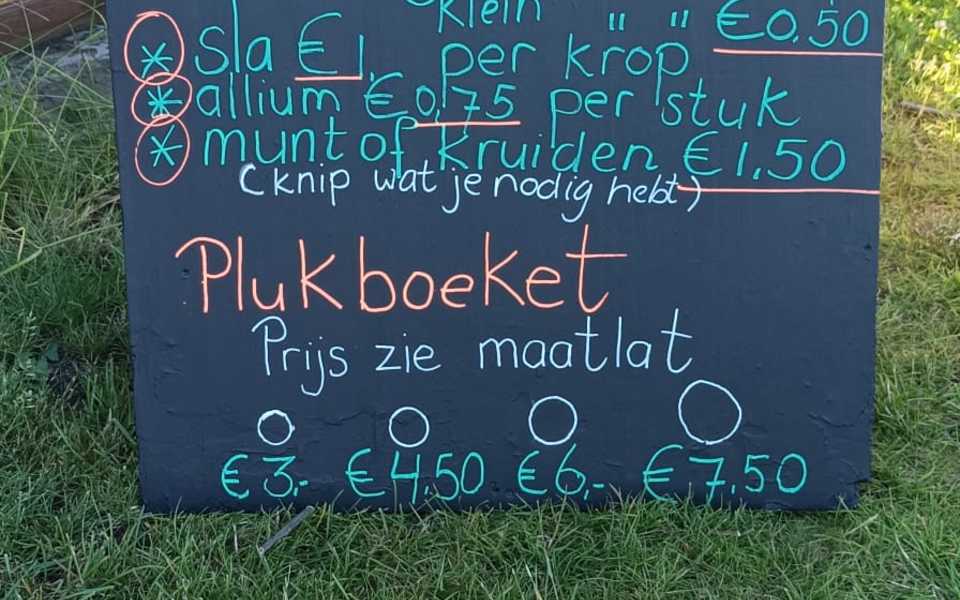 klein " " €0,50
* sla €1, per krop
* allium €0,75 per stuk
* munt of kruiden €1,50
(knip wat je nodig hebt)
Plukboeket
Prijs zie maatlat
€3,- €4,50 €6,- €7,50